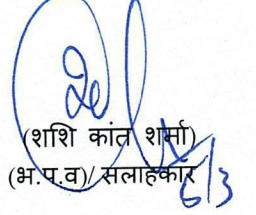 (शशि कांत शर्मा)
(भ.प.व)/ सलाहकार
6/3